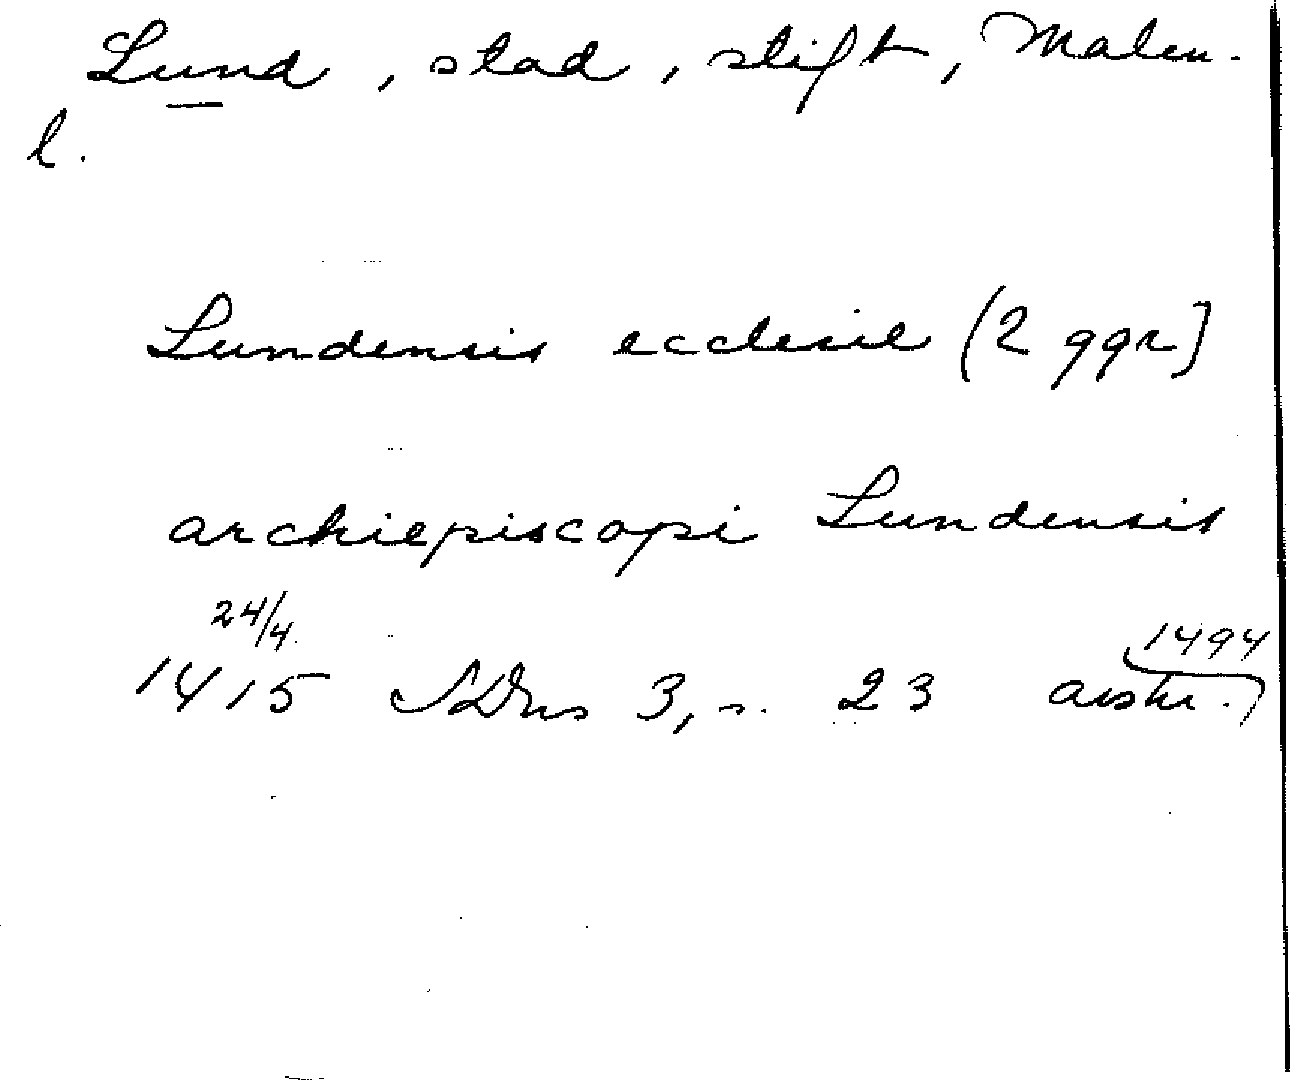 Lund, stad, stift, Malm.
l.
Lundensis ecclesie (2 ggr]
archiepiscopi Lundensis
24/4
1494
1415 SDns 3, s. 23 avskr.